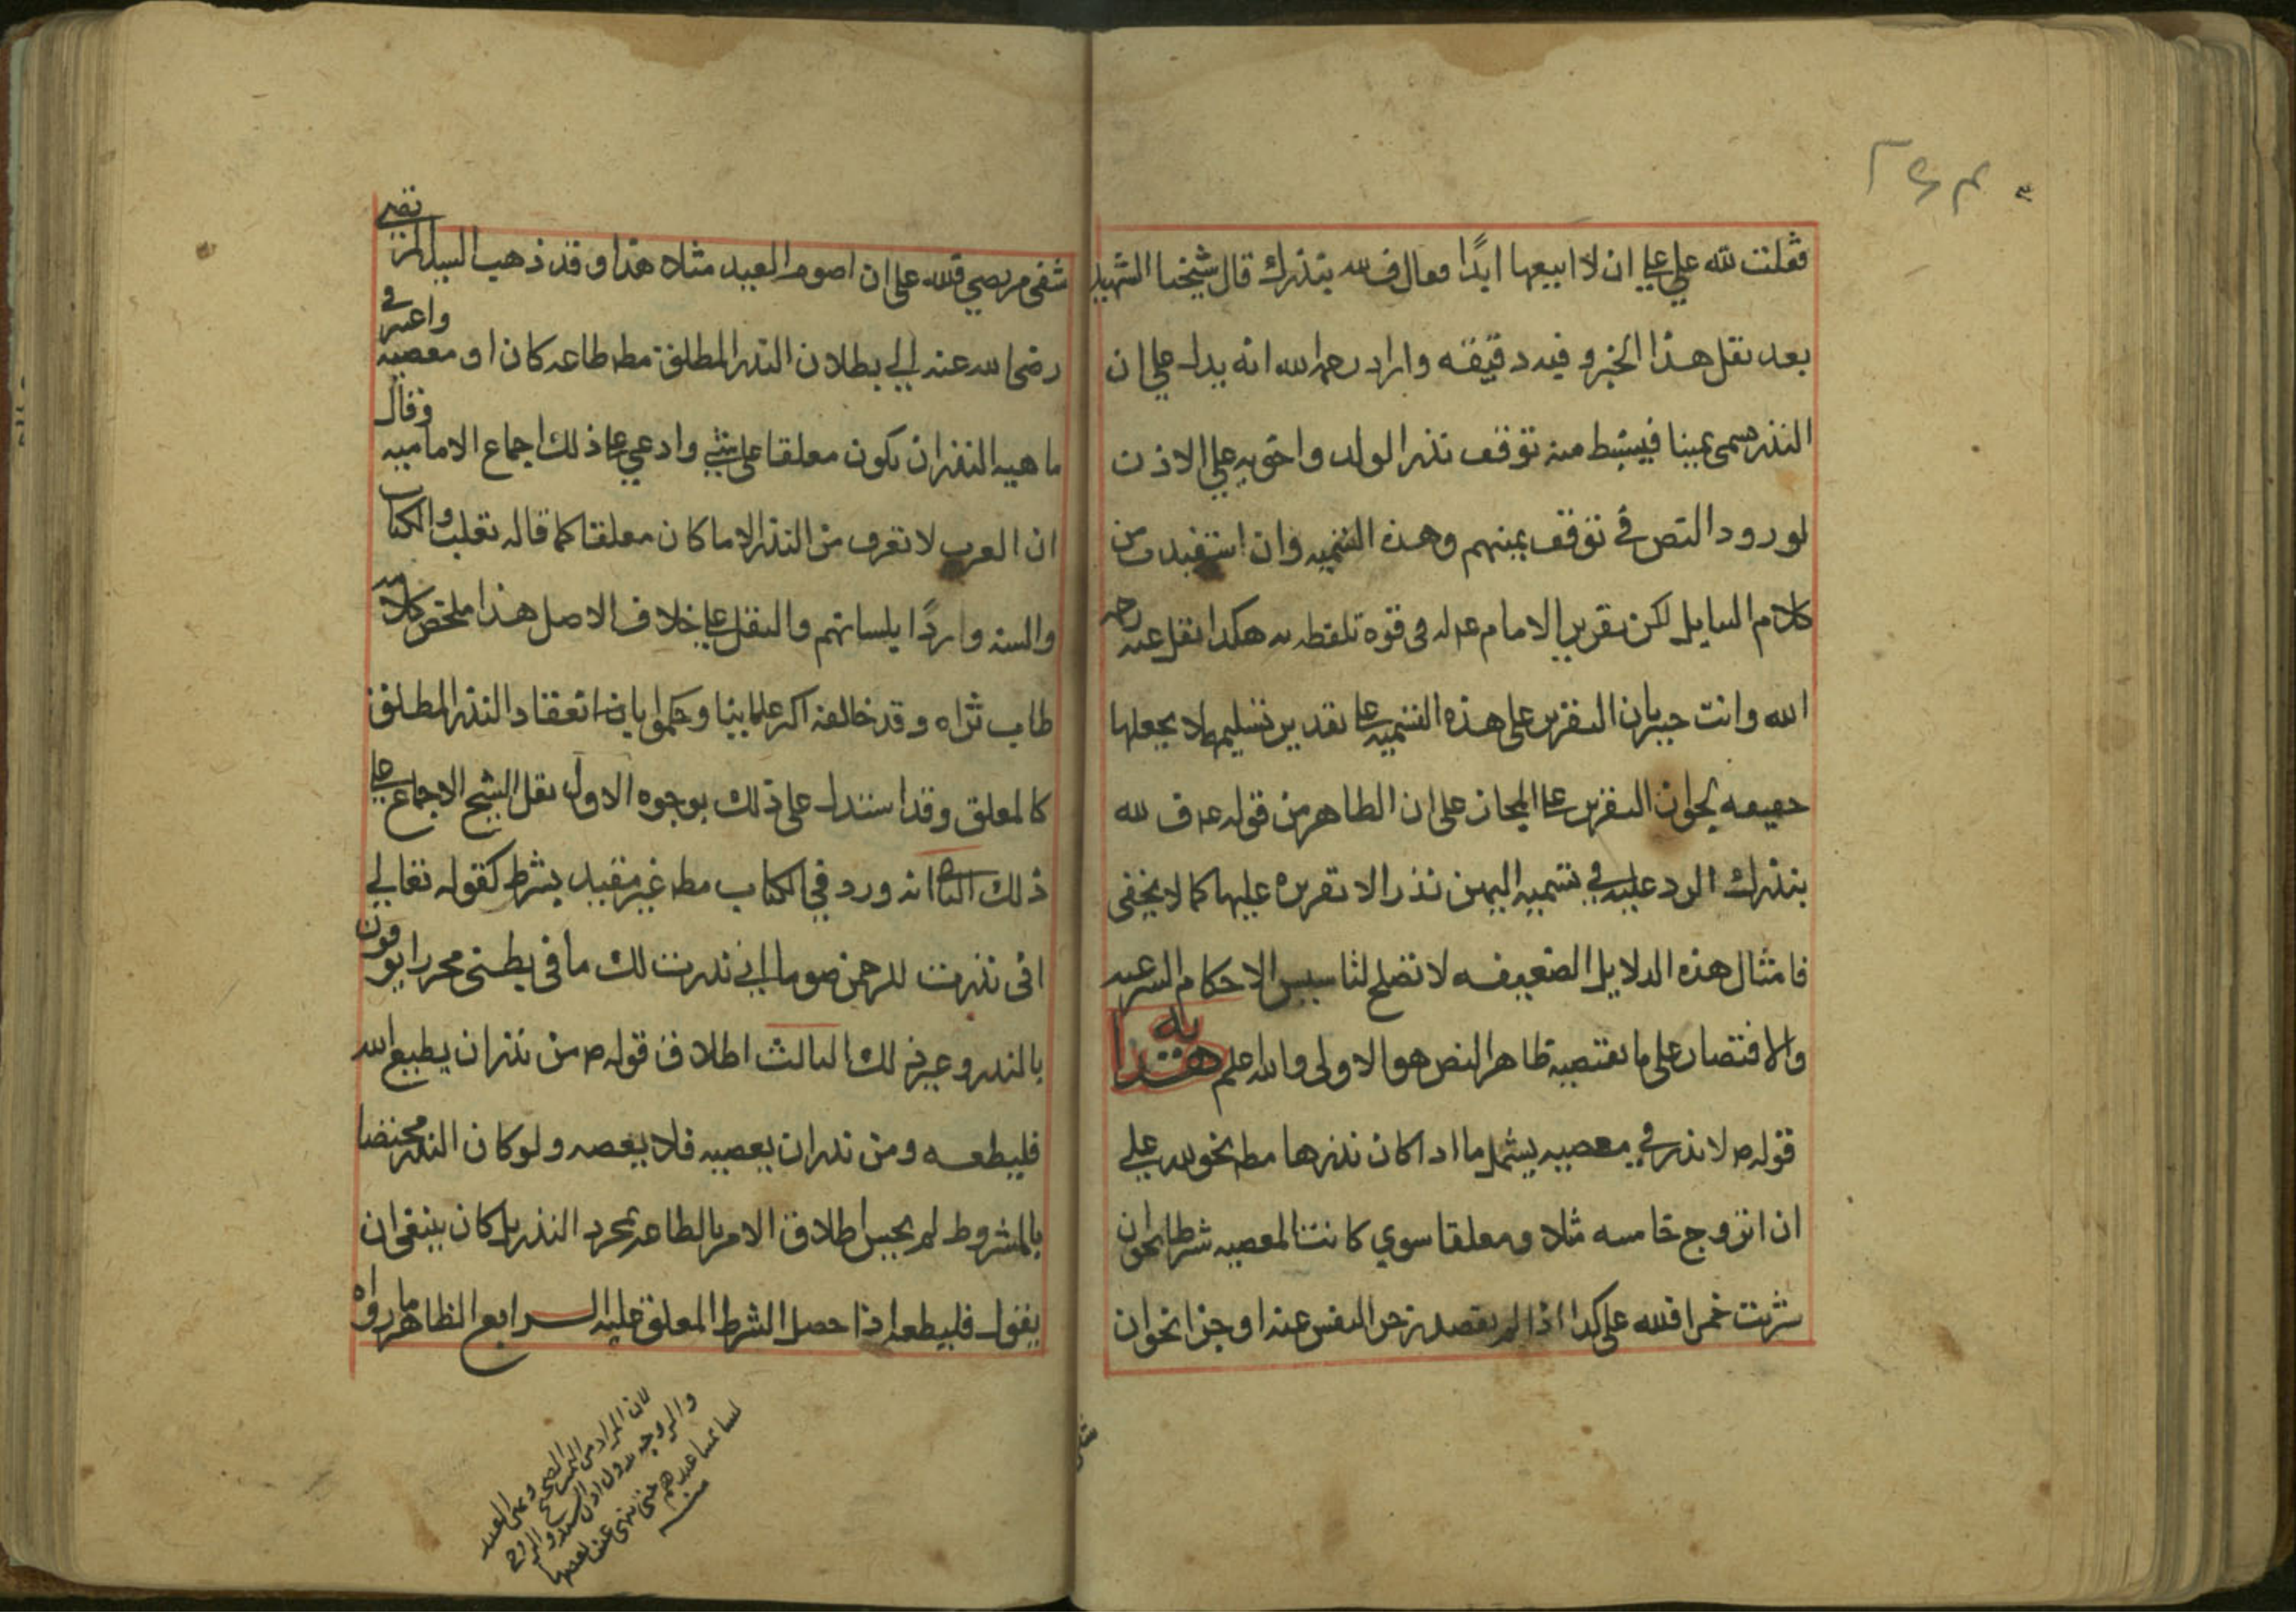 فقلت لله علي ان لا ابيعها ابدًا فقال ف لله بنذرك قال شيخنا الشهيد
بعد نقل هذا الخبر و فيه دقيقه واراد رحمه الله انه يدل على ان
النذر يسمى يمينا فيستنبط منه توقف نذر الولد واخويه علي الاذن
لورود النص في توقف يمينهم وهذه التسميه وان استفيدت من
كلام السايل لكن تقرير الامام عم له في قوة تلفظه به هكذا نقل عنه رحمه
الله وانت خبير بان التقرير على هذه التسميه على تقدير تسليمه لا يجعلها
حقيقه لجواز التقرير على المجاز على ان الظاهر من قوله عم ف لله
بنذرك الرد عليه في تسميه اليمين نذرا لا تقريره عليها كما لا يخفى
فامثال هذه الدلايل الضعيفه لا تصلح لتاسيس الاحكام الشرعيه
والاقتصار على ما يقتضيه ظاهر النص هو الاولى والله اعلم هدايه
قوله ص لا نذر في معصيه يشمل ما اذا كان نذرها مطه نحو لله علي
ان اتزوج خامسه مثلا ومعلقا سوي كانت المعصيه شرطا نحو ان
شربت خمرا فلله علي كذا اذا لم يقصد زجر النفس عنه او جزا نحو ان
شفى
شفى مريضي فلله علي ان اصوم العيد مثلا هذا وقد ذهب السيد المرتضى
رضي الله عنه الي بطلان النذر المطلق مطه طاعه كان او معصيه واعتبر في
ماهيه النذر ان يكون معلقا على شي وادعي على ذلك اجماع الاماميه وقال
ان العرب لا تعرف من النذر الا ما كان معلقا كما قاله ثعلب والكتاب
والسنه واردًا بلسانهم والنقل على خلاف الاصل هذا ملخص كلامه
طاب ثراه وقد خالفه اكثر علمائنا وحكموا بانعقاد النذر المطلق
كالمعلق وقد استدل على ذلك بوجوه الاول نقل الشيخ الاجماع علي
ذلك الثاني انه ورد في الكتاب مطه غير مقيد بشرط كقوله تعالي
اني نذرت للرحمن صوما اني نذرت لك ما في بطنى محررا يوفون
بالنذر وغير ذلك الثالث اطلاق قوله ص من نذر ان يطيع الله
فليطعه ومن نذر ان يعصيه فلا يعصه ولو كان النذر مختصا
بالمشروط لم يحسن اطلاق الامر بالطاعه بمجرد النذر بل كان ينبغي ان
يقول فليطعه اذا حصل الشرط المعلق عليه الرابع الظاهر ما رواه